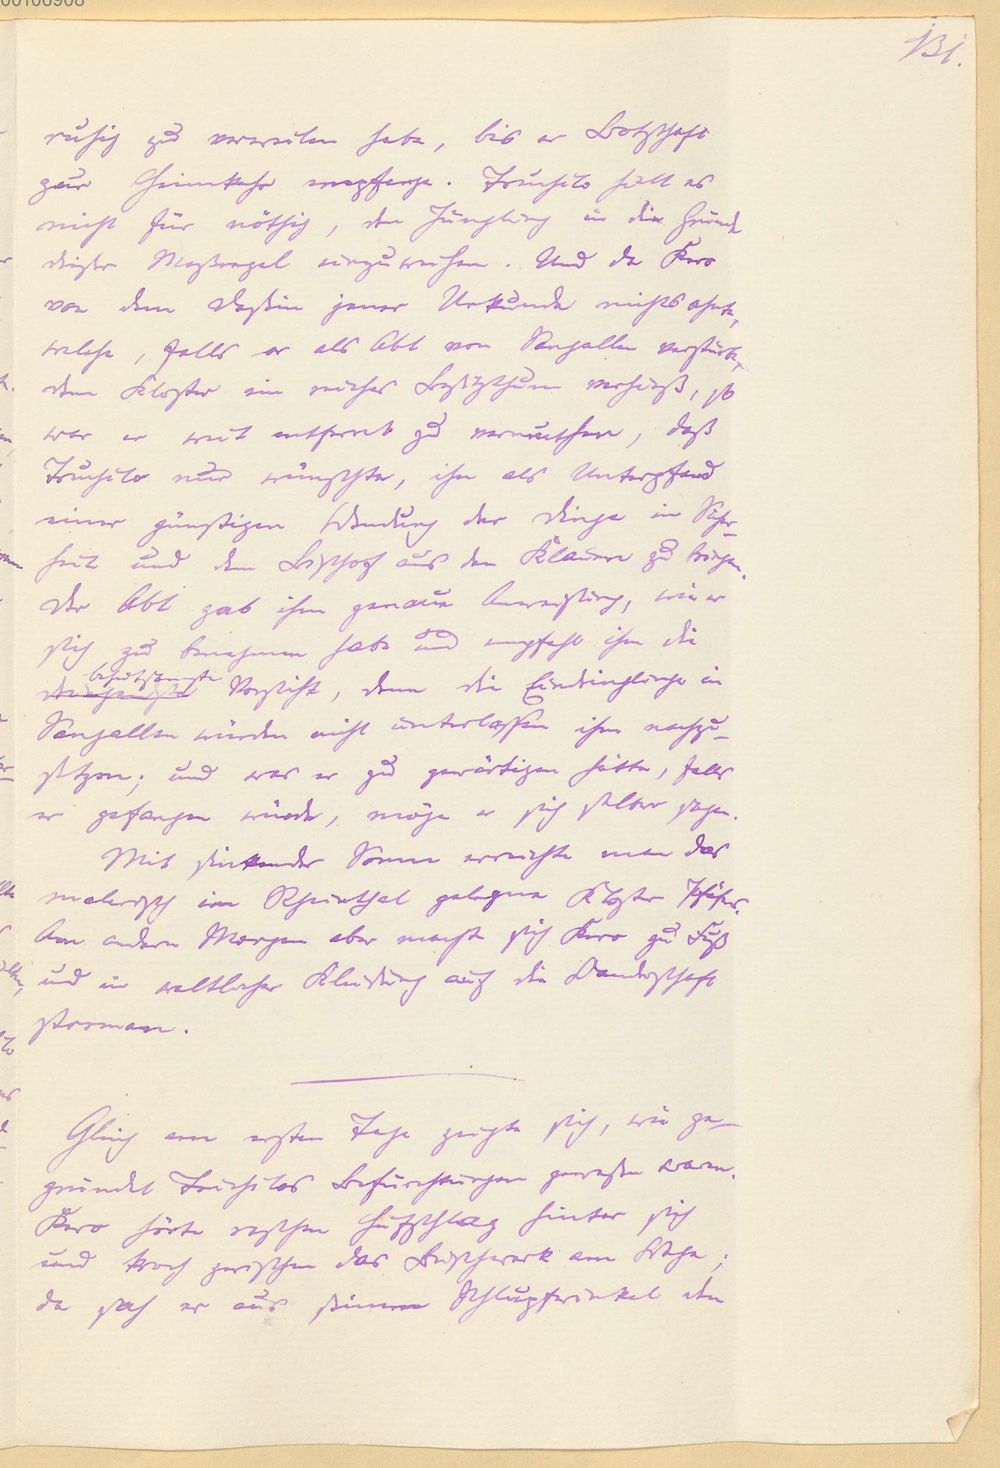 00106908
131.
ruhig zu verweilen habe, bis er Botschaft
zur Heimkehr empfange. Truchilo hielt es
nicht für nöthig, den Jüngling in die Gründe
dieser Maßregel einzuweihen. Und da Kero
von dem Dasein jener Urkunde nichts ahnte,
welche, falls er als Abt von Sangallen verstürbe,
dem Kloster ein reiches Besitzthum verhieß, so
war er weit entfernt zu vermuthen, daß
Truchilo nur wünschte, ihn als Unterpfand
einer günstigen Wendung der Dinge in Sicher-
heit und dem Bischof aus den Klauen zu bringen.
Der Abt gab ihm genaue Anweisung, wie er
sich zu benehmen habe und empfahl ihm die
behutsamste
Vorsicht, denn die Eindringlinge in
Sangallen würden nicht unterlassen ihm nachzu-
setzen; und was er zu gewärtigen hätte, falls
er gefangen würde, möge er sich selber sagen.
Mit sinkender Sonne erreichte man das
malerisch im Rheinthal gelegene Kloster Pfäfers.
Am andern Morgen aber machte sich Kero zu Fuß
und in weltlicher Kleidung auf die Wanderschaft
stroman.
Gleich am ersten Tage zeigte sich, wie ge-
gründet Truchilos Befürchtungen gewesen waren.
Kero hörte raschen Hufschlag hinter sich
und kroch zwischen das Buschwerk am Wege;
da sah er aus seinem Schlupfwinkel den